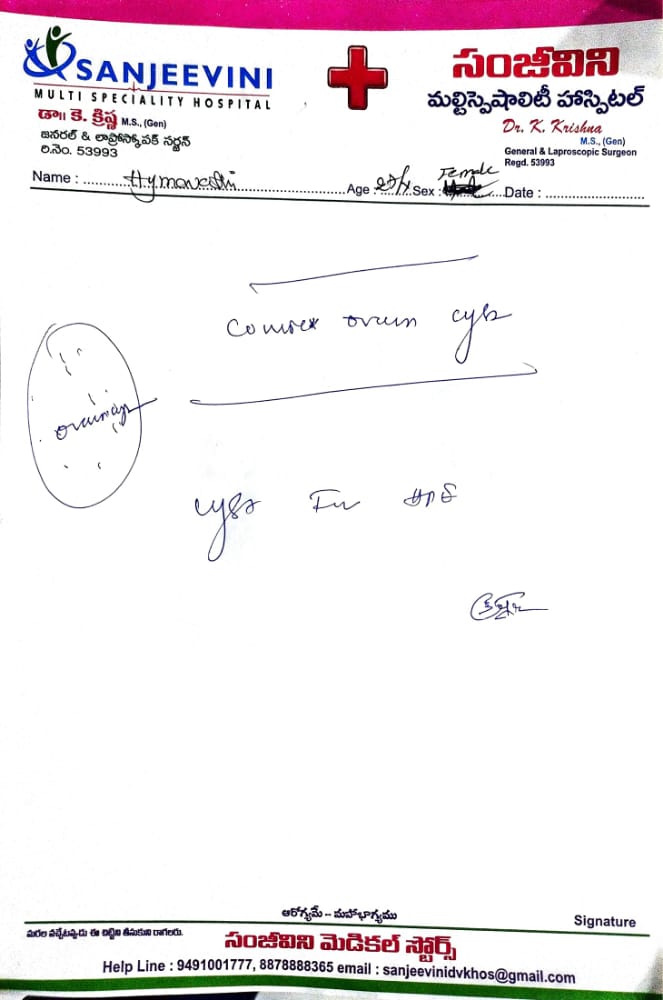 SANJEEVINI
MULTI SPECIALITY HOSPITAL
డా॥ కె. క్రిష్ణ M.S., (Gen)
జనరల్ & లాప్రోస్కోపక్ సర్జన్
రి.నెం. 53993
సంజీవిని
మల్టిస్పెషాలిటీ హాస్పిటల్
Dr. K. Krishna
M.S., (Gen)
General & Laproscopic Surgeon
Regd. 53993
Name : Hymavathi Age : Sex : Female Date :
cyst
ఆరోగ్యమే – మహాభాగ్యము
Signature
మరల వచ్చేటప్పుడు ఈ చిట్టిని తీసుకుని రాగలరు.
సంజీవిని మెడికల్ స్టోర్స్
Help Line : 9491001777, 8878888365 email : sanjeevinidvkhos@gmail.com